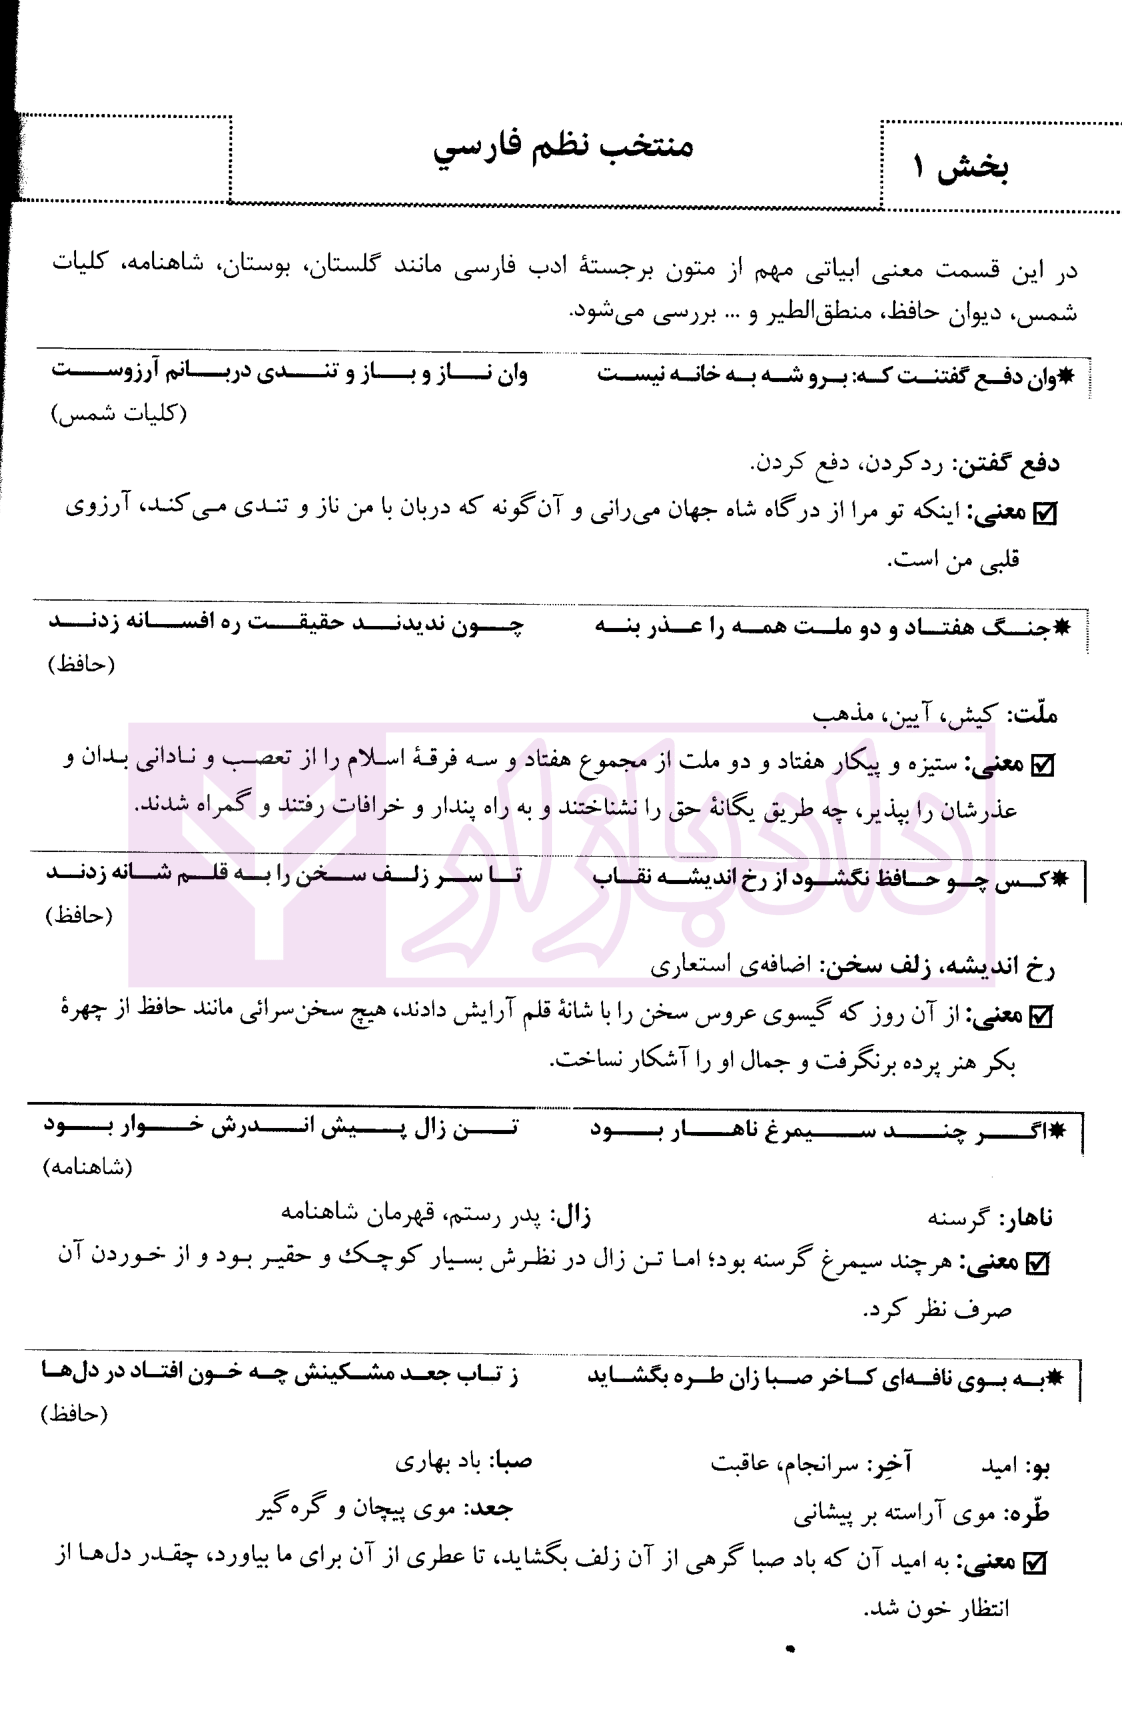 بخش ۱
منتخب نظم فارسي
در این قسمت معنی ابیاتی مهم از متون برجستهٔ ادب فارسی مانند گلستان، بوستان، شاهنامه، کلیات
شمس، دیوان حافظ، منطق‌الطیر و ... بررسی می‌شود.
✷وان دفع گفتنت که: برو شه به خانه نیست وان ناز و باز و تندی دربانم آرزوست
(کلیات شمس)
دفع گفتن: ردکردن، دفع کردن.
☑ معنی: اینکه تو مرا از درگاه شاه جهان می‌رانی و آن‌گونه که دربان با من ناز و تندی می‌کند، آرزوی
قلبی من است.
✷جنگ هفتاد و دو ملت همه را عذر بنه چون ندیدند حقیقت ره افسانه زدند
(حافظ)
ملّت: کیش، آیین، مذهب
☑ معنی: ستیزه و پیکار هفتاد و دو ملت از مجموع هفتاد و سه فرقهٔ اسلام را از تعصب و نادانی بدان و
عذرشان را بپذیر، چه طریق یگانهٔ حق را نشناختند و به راه پندار و خرافات رفتند و گمراه شدند.
✷کس چو حافظ نگشود از رخ اندیشه نقاب تا سر زلف سخن را به قلم شانه زدند
(حافظ)
رخ اندیشه، زلف سخن: اضافه‌ی استعاری
☑ معنی: از آن روز که گیسوی عروس سخن را با شانهٔ قلم آرایش دادند، هیچ سخن‌سرائی مانند حافظ از چهرهٔ
بکر هنر پرده برنگرفت و جمال او را آشکار نساخت.
✷اگر چند سیمرغ ناهار بود تن زال پیش اندرش خوار بود
(شاهنامه)
ناهار: گرسنه زال: پدر رستم، قهرمان شاهنامه
☑ معنی: هرچند سیمرغ گرسنه بود؛ اما تن زال در نظرش بسیار کوچک و حقیر بود و از خوردن آن
صرف نظر کرد.
✷به بوی نافه‌ای کاخر صبا زان طره بگشاید ز تاب جعد مشکینش چه خون افتاد در دل‌ها
(حافظ)
بو: امید آخِر: سرانجام، عاقبت صبا: باد بهاری
طّره: موی آراسته بر پیشانی جعد: موی پیچان و گره‌گیر
☑ معنی: به امید آن که باد صبا گرهی از آن زلف بگشاید، تا عطری از آن برای ما بیاورد، چقدر دل‌ها از
انتظار خون شد.
دادبازار